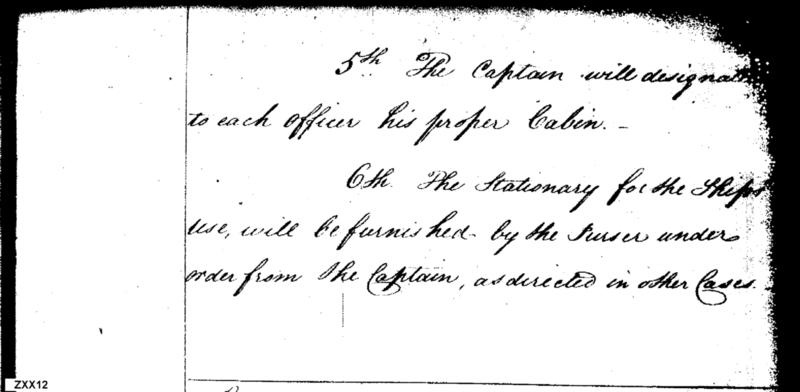 5th The Captain will designate
to each officer his proper Cabin. –
6th. The Stationary for the Ships
use, will be furnished by the Purser under
order from the Captain, as directed in other Cases.
ZXX12